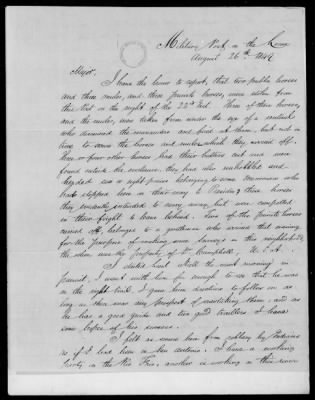 Military Post on the Leona
August 26th 1849
Major.
I have the honor to report, that two public horses
and three mules, and three private horses, were stolen from
this Post on the night of the 22d Inst. Three of these horses,
and the mules, were taken from under the eye of a sentinel
who discovered the marauders and fired at them, but not in
time to save the horses and mules, which they carried off.
three or four other horses had their halters cut and were
found outside the enclosure, they had also unhobbled and
seven or eight ponies belonging to some Mexicans who
had stopped here on their way to Presidio; these horses
they evidently intended to carry away, but were compelled
in their flight to leave behind. Two of the private horses
carried off, belonged to a gentleman who arrived that evening
for the purpose of making some surveys in this neighborhood,
the other was the property of Dr. Campbell U.S.A.
I started Lieut. the next morning in
pursuit. I went with him far enough to see that he was
on the right trail. I gave him directions to follow on as
long as there was any prospect of overtaking them; and as
he has a good guide and two good trailers I have
some hopes of his success.
I felt as secure here from robbery by Indians
as if I had been in San Antonio. I have a working
party on the Rio Frio, another is working on this river